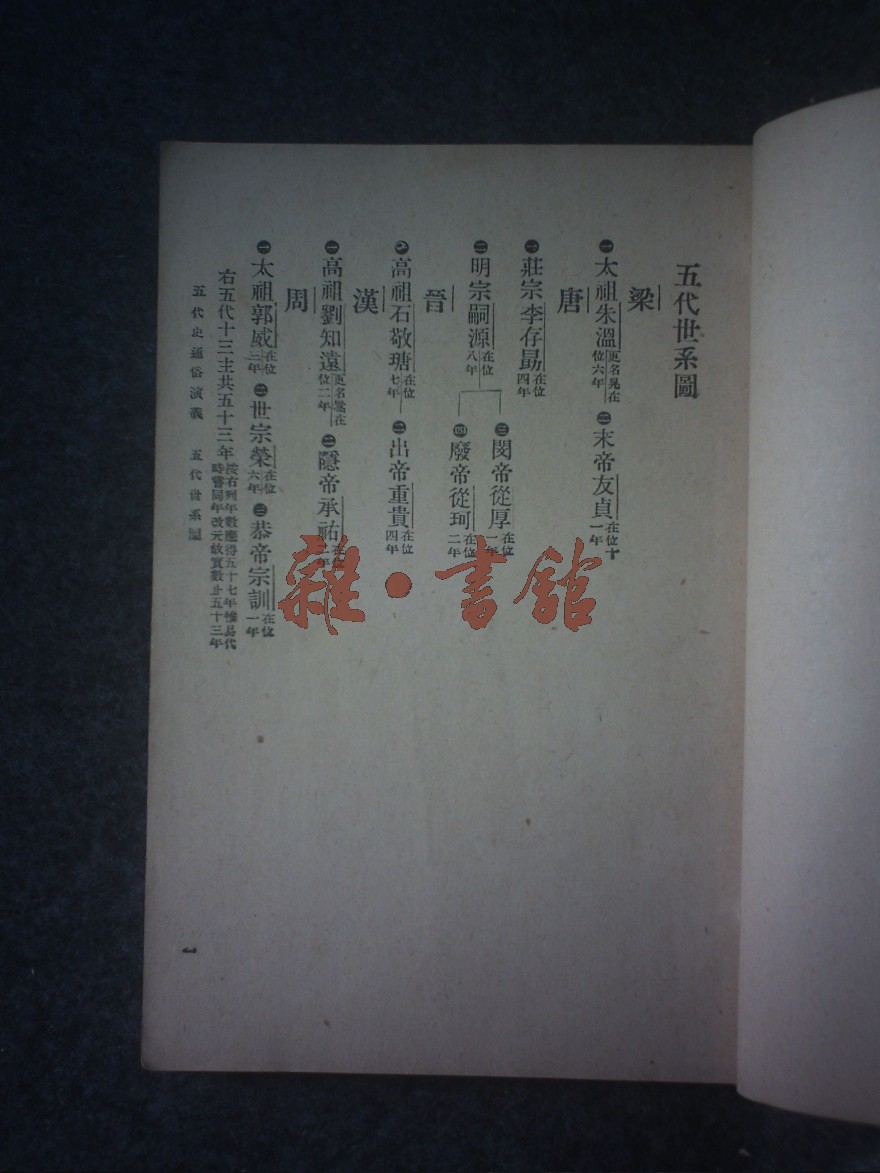 五代世系圖
梁
㊀太祖朱溫更名晃在位六年 ㊁末帝友貞在位十一年
唐
㊀莊宗李存勗在位四年
㊁明宗嗣源在位八年
㊂閔帝從厚在位一年
㊃廢帝從珂在位二年
晉
高祖石敬瑭在位七年 出帝重貴在位四年
漢
㊀高祖劉知遠更名暠在位二年 ㊁隱帝承祐在位二年
周
㊀太祖郭威在位三年 ㊁世宗榮在位六年 ㊂恭帝宗訓在位一年
右五代十三主共五十三年按右列年數應得五十七年惟易代時嘗同年改元故實數止五十三年
五代史通俗演義 五代世系圖
雜·書館